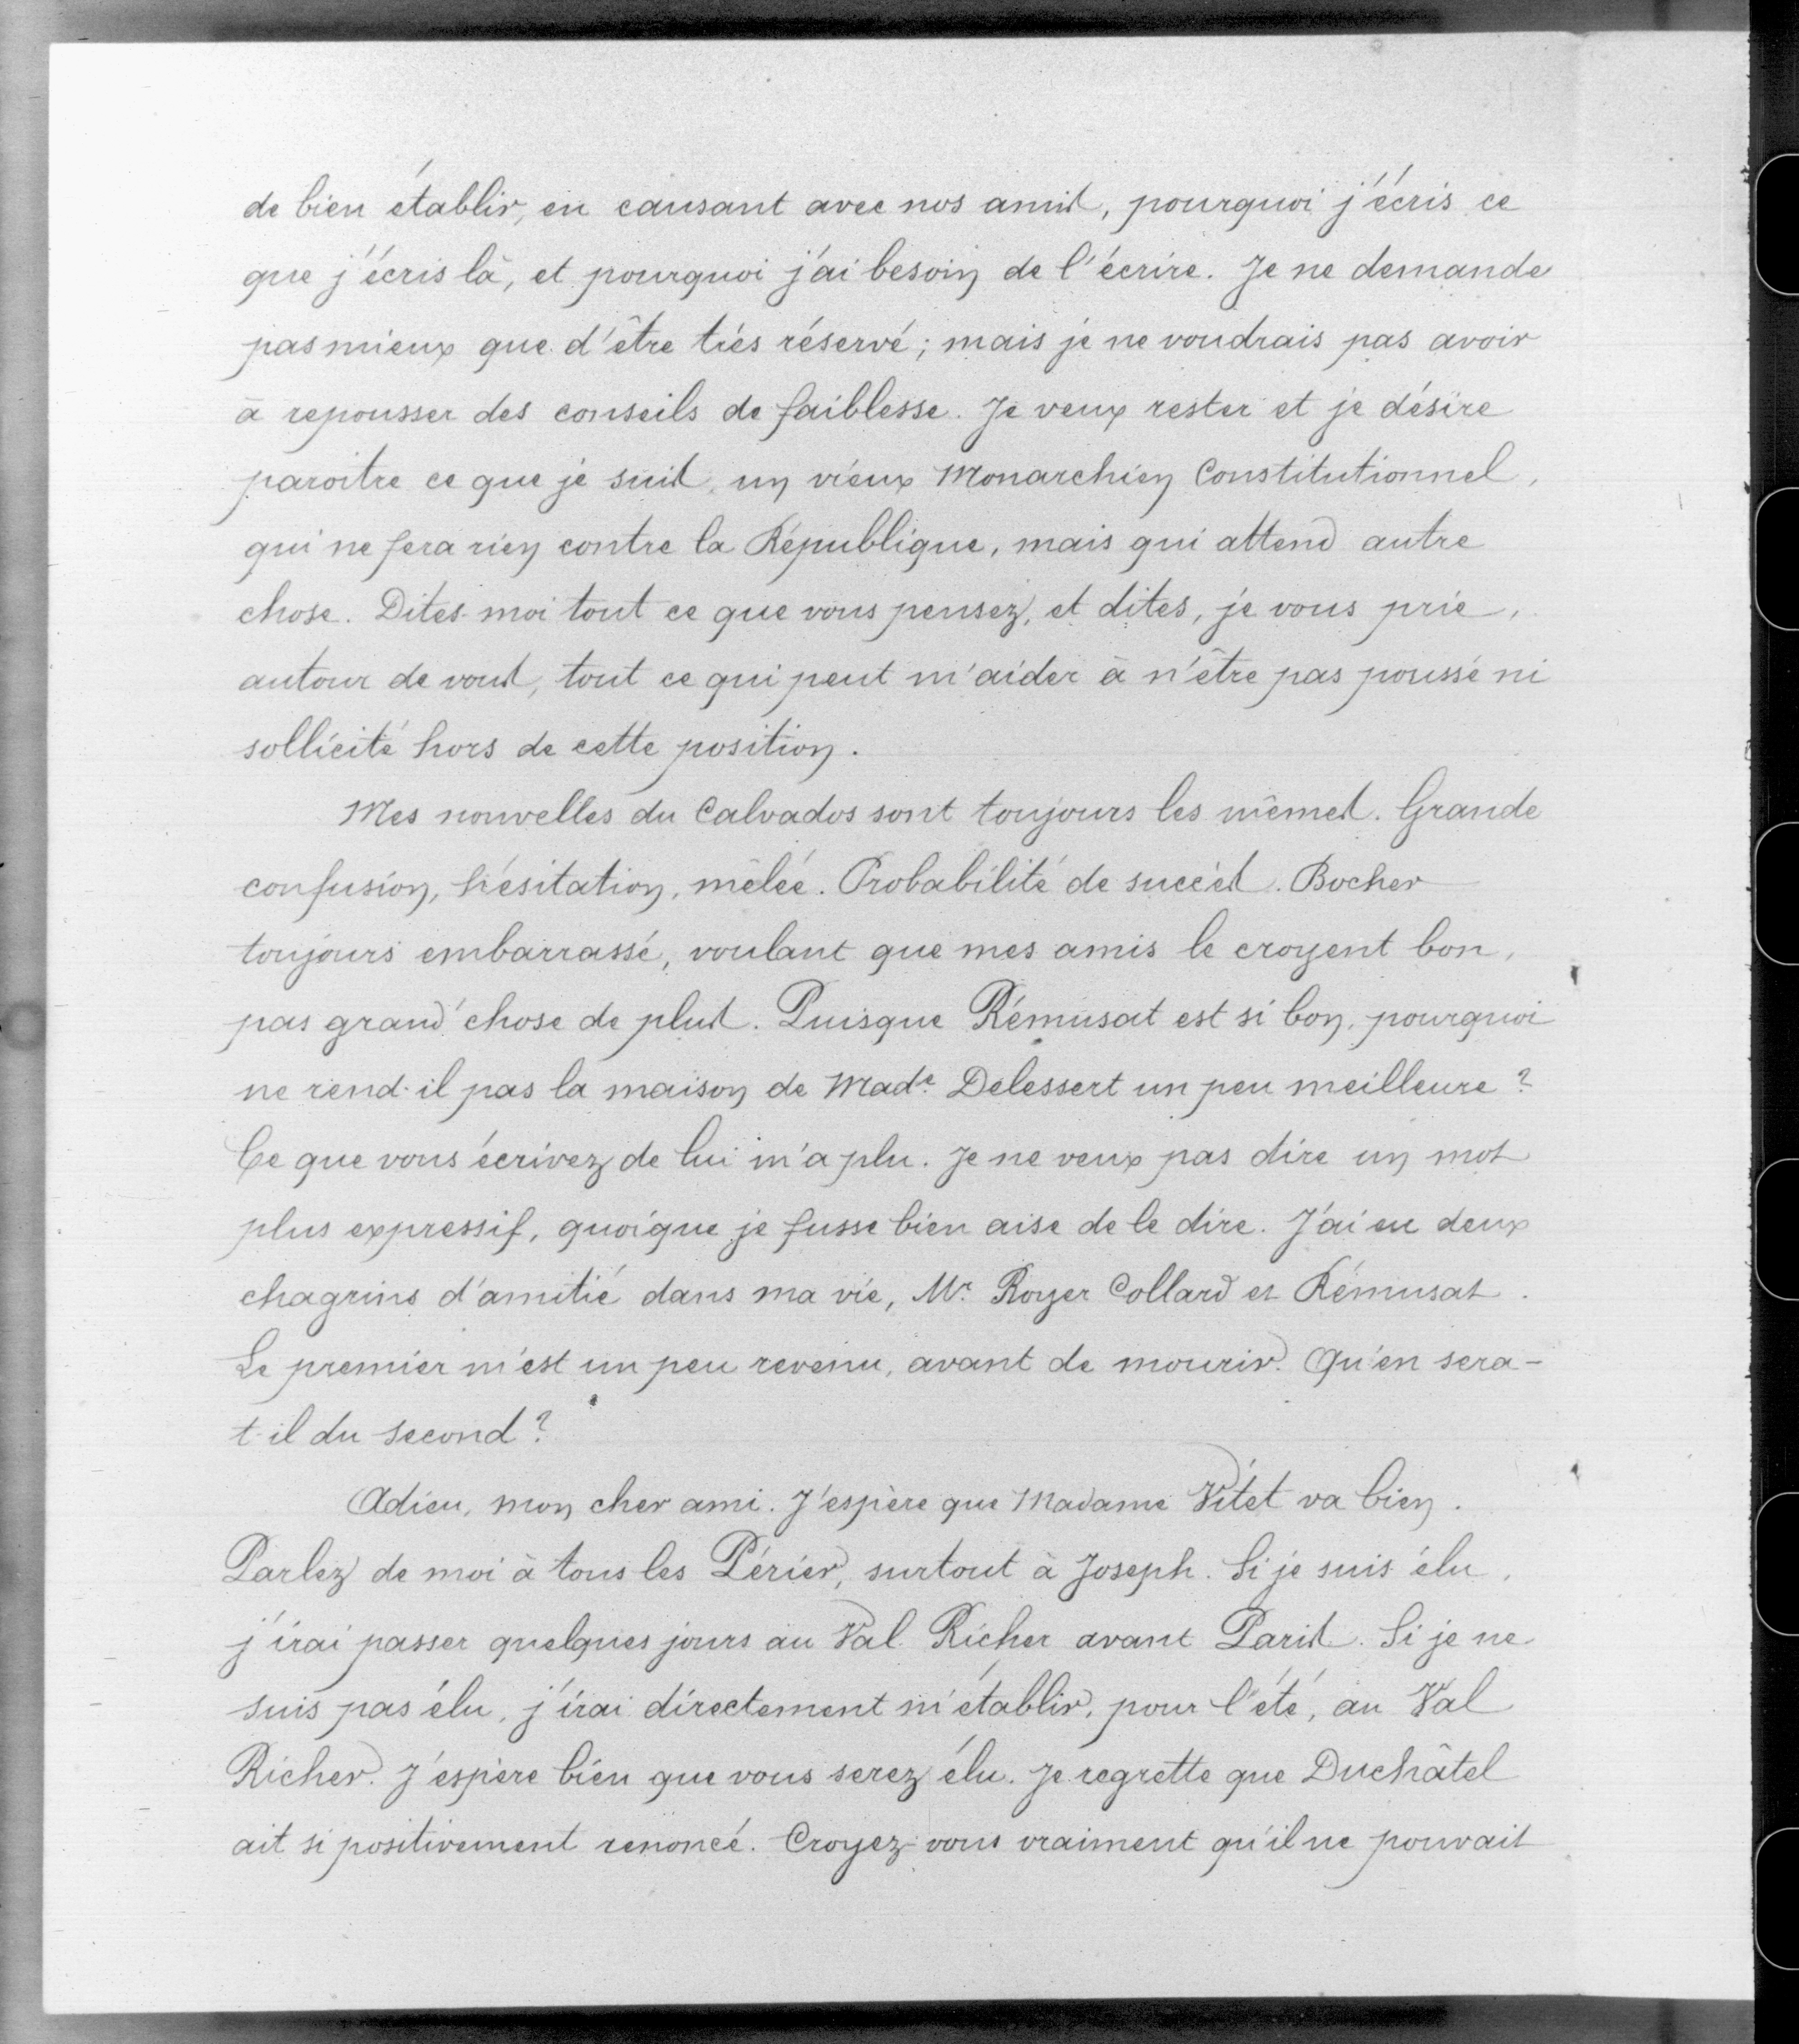 de bien établir, en causant avec nos amis, pourquoi j'écris ce
que j'écris là, et pourquoi j'ai besoin de l'écrire. Je ne demande
pas mieux que d'être très réservé ; mais je ne voudrais pas avoir
à repousser des conseils de faiblesse. Je veux rester et je désire
paroitre ce que je suis, un vieux Monarchien Constitutionnel,
qui ne fera rien contre la République, mais qui attend autre
chose. Dites-moi tout ce que vous pensez, et dites, je vous prie,
autour de vous, tout ce qui peut m'aider à n'être pas poussé ni
sollicité hors de cette position.
Mes nouvelles du Calvados sont toujours les mêmes. Grande
confusion, hésitation, mêlée. Probabilité de succès. Bocher
toujours embarrassé, voulant que mes amis le croyent bon,
pas grand'chose de plus. Puisque Rémusat est si bon, pourquoi
ne rend-il pas la maison de Made. Delessert un peu meilleure ?
Ce que vous écrivez de lui m'a plu. Je ne veux pas dire un mot
plus expressif, quoique je fusse bien aise de le dire. J'ai eu deux
chagrins d'amitié dans ma vie, Mr. Royer Collard et Rémusat.
Le premier m'est un peu revenu, avant de mourir. Qu'en sera-
t-il du second ?
Adieu, mon cher ami. J'espère que Madame Vitet va bien.
Parlez de moi à tous les Périer, surtout à Joseph. Si je suis élu,
j'irai passer quelques jours au Val Richer avant Paris. Si je ne
suis pas élu, j'irai directement m'établir, pour l'été, au Val
Richer. J'espère bien que vous serez élu. Je regrette que Duchâtel
ait si positivement renoncé. Croyez-vous vraiment qu'il ne pouvait